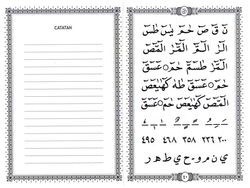 CATATAN
ن ق ص حم يس طس
الر الم المر المص
المر طسم حم عسق
حم عسق طه كهيعص
المص كهيعص حم عسق
٣٥٨ ٤٦٨ ٤٩٥